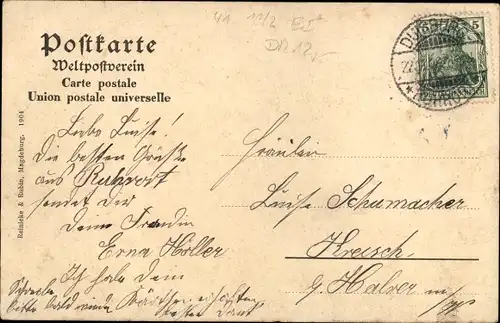 Postkarte
Weltpostverein
Carte postale
Union postale universelle
Reinicke & Rubin, Magdeburg. 1904
41 12/2
5
DUISBURG
Liebe Luise!
Die besten Grüße
aus Ruhrort
sendet Dir
Deine Freundin
Erna Höller
Ich habe dein
Kärtchen erhalten
besten Dank
Schreibe
bitte bald
Fräulein
Luise Schumacher
Kreisch
Halver